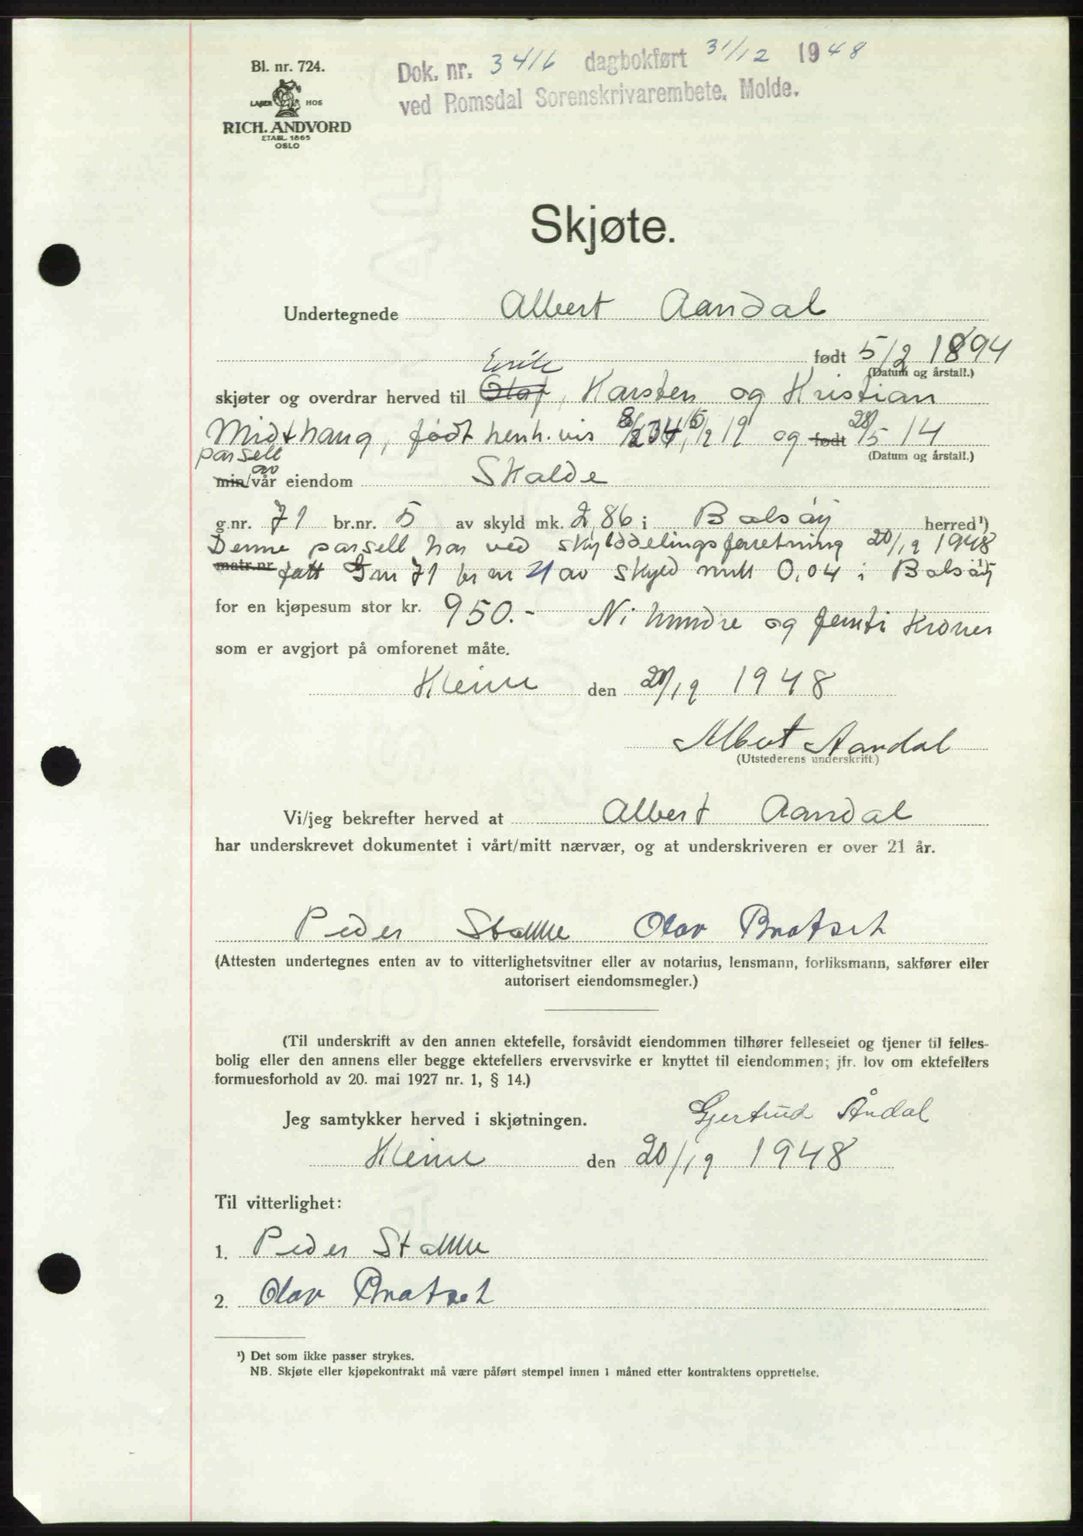 Bl. nr. 724.
LAGER HOS
RICH. ANDVORD
ETABL. 1865
OSLO
Dok. nr. 3416 dagbokført 31/12 1948
ved Romsdal Sorenskrivarembete, Molde.
Skjøte.
Undertegnede Albert Aandal
født 5/2 1894
(Datum og årstall.)
skjøter og overdrar herved til Olaf, Karsten og Kristian
Midthaug, født henh.vis 19 og født 14
(Datum og årstall.)
parsell av
min/vår eiendom Skalde
g.nr. 71 br.nr. 5 av skyld mk. 2,86 i Bolsøy herred¹)
Denne parsell har ved skylddelingsforretning 20/12 1948
matr.nr fått Gnr 71 br nr 21 av skyld mrk 0,04 i Bolsøy
for en kjøpesum stor kr. 950.- Ni hundre og femti kroner
som er avgjort på omforenet måte.
Kleive den 20/12 1948
Albert Aandal
(Utstederens underskrift.)
Vi/jeg bekrefter herved at Albert Aandal
har underskrevet dokumentet i vårt/mitt nærvær, og at underskriveren er over 21 år.
Peder Olav
(Attesten undertegnes enten av to vitterlighetsvitner eller av notarius, lensmann, forliksmann, sakfører eller
autorisert eiendomsmegler.)
(Til underskrift av den annen ektefelle, forsåvidt eiendommen tilhører felleseiet og tjener til felles-
bolig eller den annens eller begge ektefellers ervervsvirke er knyttet til eiendommen; jfr. lov om ektefellers
formuesforhold av 20. mai 1927 nr. 1, § 14.)
Jeg samtykker herved i skjøtningen. Gjertrud Åndal
Kleive den 20/12 1948
Til vitterlighet:
1. Peder
2. Olav
¹) Det som ikke passer strykes.
NB. Skjøte eller kjøpekontrakt må være påført stempel innen 1 måned etter kontraktens opprettelse.